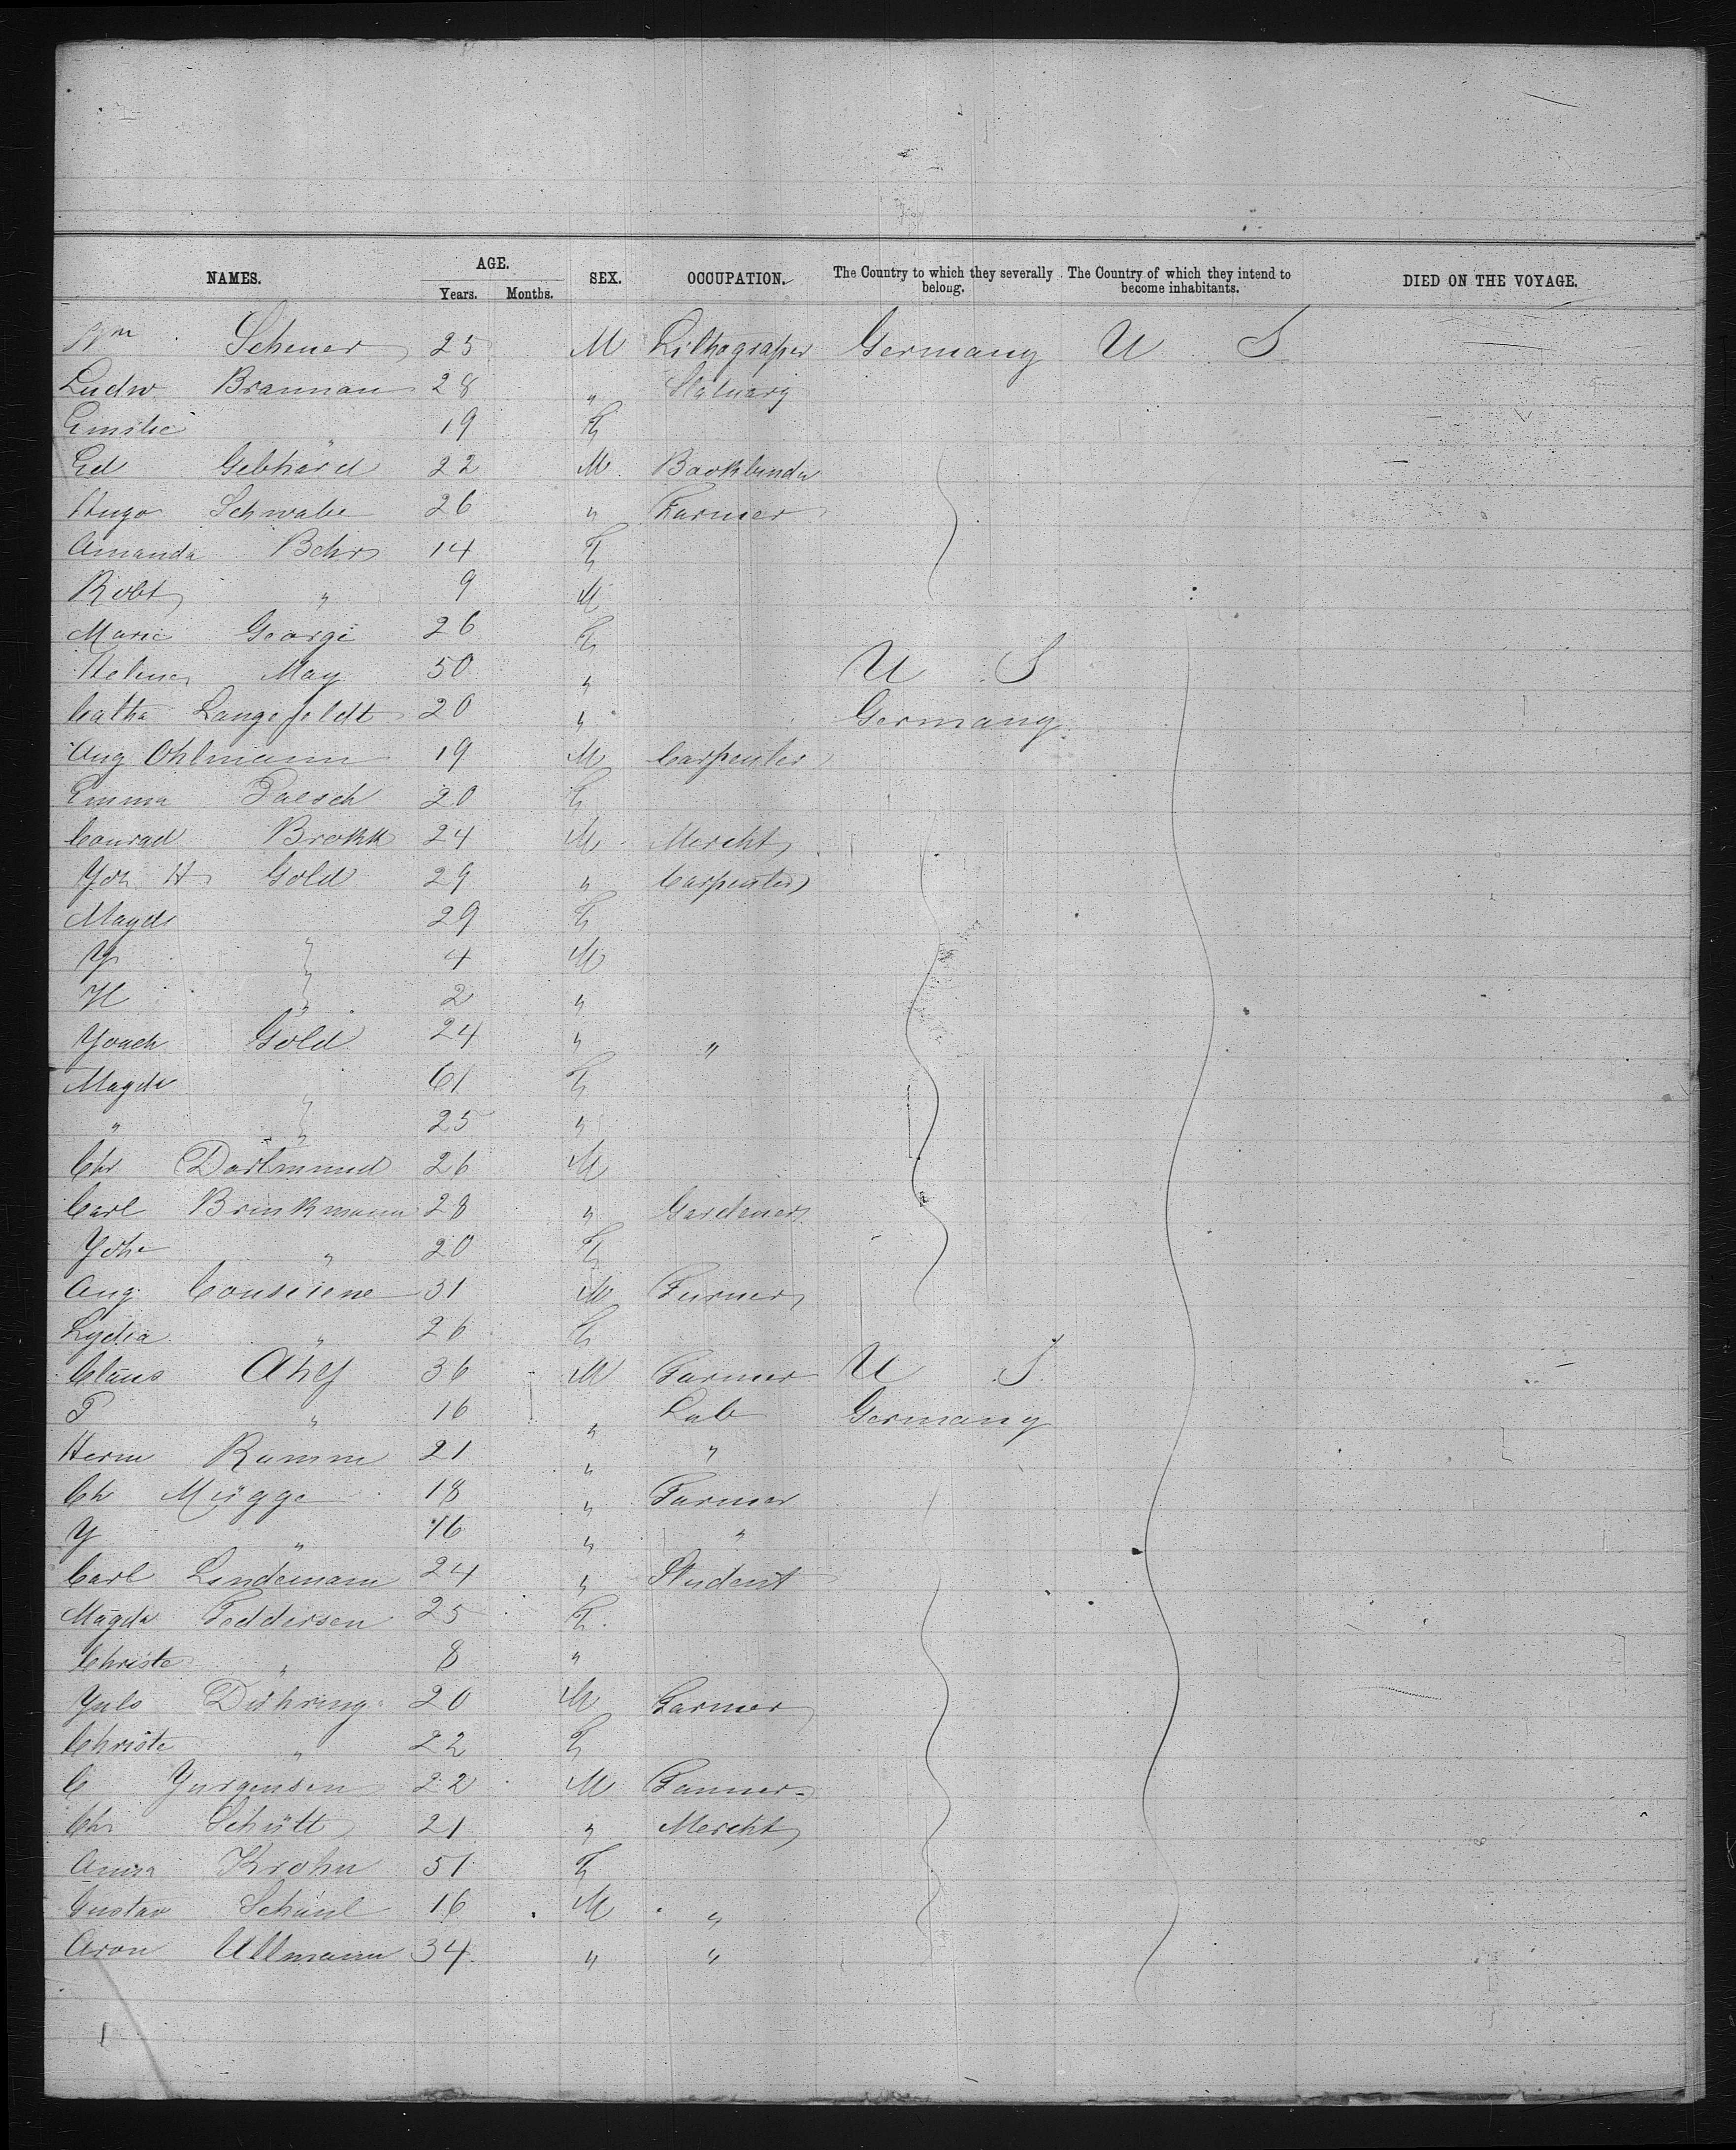 NAMES. AGE. Years. Months. SEX. OCCUPATION. The Country to which they severally belong. The Country of which they intend to become inhabitants. DIED ON THE VOYAGE.
Wm Scheuer 25 M Lithograper Germany U S
Ludw Brauman 28 " Statuary
Emilie " 19 F
Ed Gebhard 22 M Bookbinder
Hugo Schwabe 26 " Farmer
Amanda Behr 14 F
Robt " 9 M
Marie George 26 F
Helene May 50 " U S
Catha Langefeldt 20 " Germany
Aug Ohlmann 19 M Carpenter
Emma Paesch 20 F
Conrad Brokk 24 M Mercht
Joh H Gold 29 " Carpenter
Magda " 29 F
J " 4 M
H " 2 "
Joach Gold 24 " "
Magda " 61 F
" " 25 "
Chr Dortmund 26 M
Carl Brinkmann 28 " Gardener
Johe " 20 F
Aug 31 M
Lydia " 26 F
Claus Ahlf 36 M Farmer U S
P " 16 " Lab Germany
Herm Ramm 21 " "
Ch Mügge 18 " Farmer
J " 16 " "
Carl Lindemann 24 " Student
Magda Feddersen 25 F
Christe " 8 "
Juls Dühring 20 M Farmer
Christe " 22 F
C Jurgensen 22 M Farmer
Chr Schütt 21 " Mercht
Anna Krohn 51 F
Gustav 16 M "
Aron Ullmann 34 " "